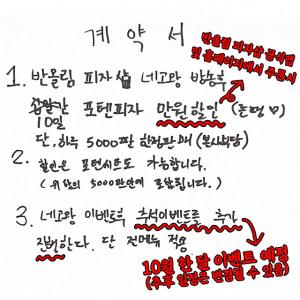 계약서
반올림 피자샵 공식앱
및 홈페이지에서 주문시
1. 반올림 피자샵 네고왕 방송후
10일
포텐피자 만원할인
단, 하루 5000판 한정판매 (본사부담)
2. 할인은 포텐세트도 가능합니다.
(위 5000판안에 포함됩니다.)
3. 네고왕 이벤트후 추석이벤트를 추가
진행한다. 단 전메뉴 적용
10월 한 달 이벤트 예정
(추후 일정은 변경될 수 있음)